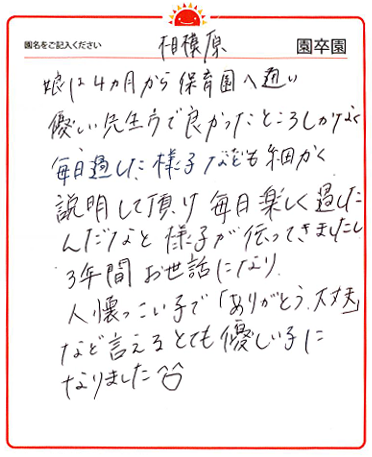 園名をご記入ください 相模原 園卒園
娘は4カ月から保育園へ通い
優しい先生方で良かったところしかなく
毎日過した様子なども細かく
説明して頂け毎日楽しく過した
んだなと様子が伝ってきましたし
3年間お世話になり
人懐っこい子で「ありがとう、大丈夫」
など言えるとても優しい子に
なりました